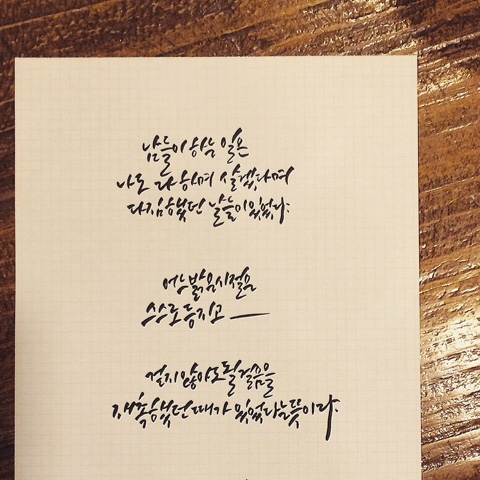 남들이 하는 일은
나도 다 하며 살겠다며
다짐했던 날들이 있었다.
어느 밝음 시절을
스스로 등지고 —
걷지 않아도 될 걸음을
재촉했던 때가 있었다는 뜻이다.